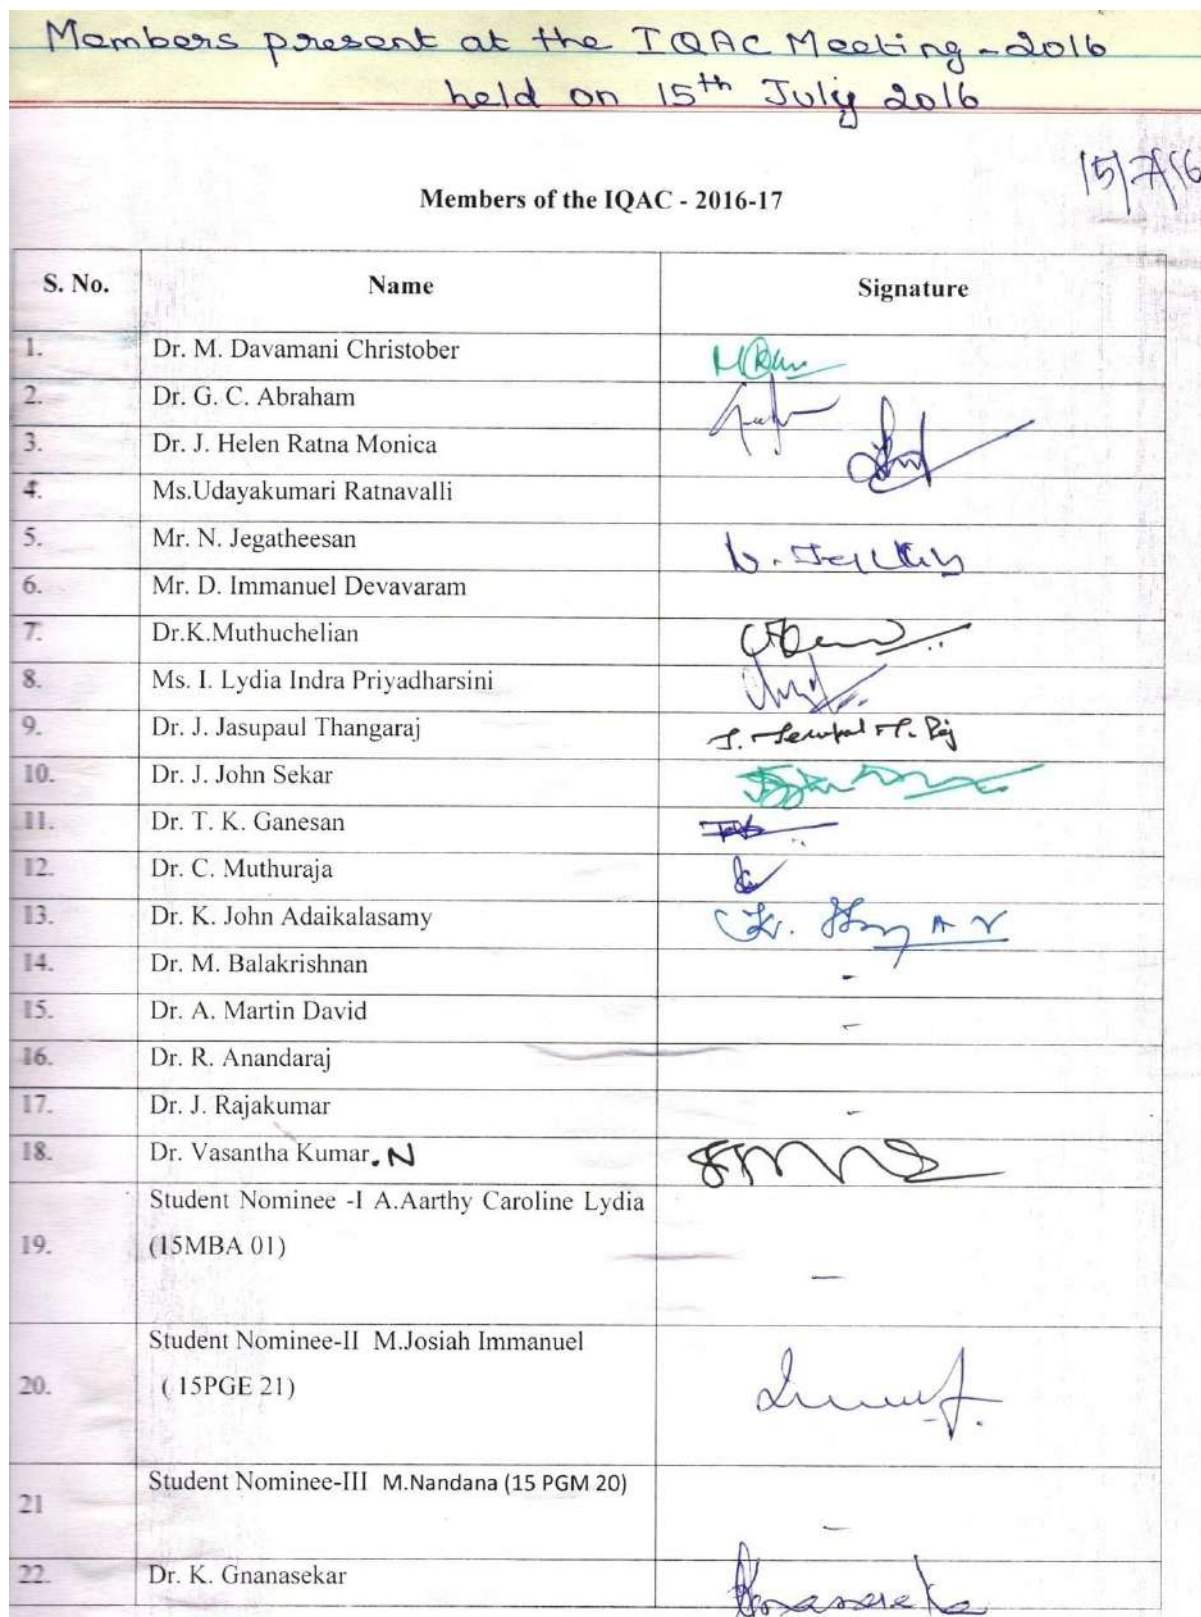 Members present at the IQAC Meeting - 2016
held on 15th July 2016
15/7/16
Members of the IQAC - 2016-17
S. No. Name Signature
1. Dr. M. Davamani Christober
2. Dr. G. C. Abraham
3. Dr. J. Helen Ratna Monica
4. Ms.Udayakumari Ratnavalli
5. Mr. N. Jegatheesan
6. Mr. D. Immanuel Devavaram
7. Dr.K.Muthuchelian
8. Ms. I. Lydia Indra Priyadharsini
9. Dr. J. Jasupaul Thangaraj
10. Dr. J. John Sekar
11. Dr. T. K. Ganesan
12. Dr. C. Muthuraja
13. Dr. K. John Adaikalasamy
14. Dr. M. Balakrishnan -
15. Dr. A. Martin David -
16. Dr. R. Anandaraj
17. Dr. J. Rajakumar -
18. Dr. Vasantha Kumar. N
Student Nominee -I A.Aarthy Caroline Lydia
19. (15MBA 01) -
Student Nominee-II M.Josiah Immanuel
20. ( 15PGE 21)
Student Nominee-III M.Nandana (15 PGM 20)
21 -
22. Dr. K. Gnanasekar